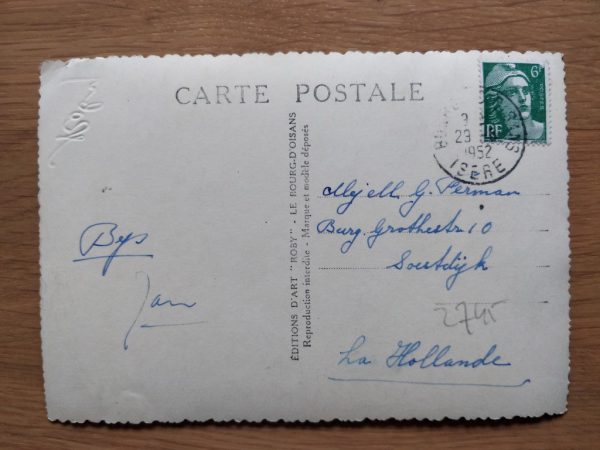 Roby
CARTE POSTALE
6F
POSTES
RF
29
1952
ISERE
Mejell G. Perman
Burg. Grothestr 10
Soestdijk
2745
La Hollande
Bys
Jan
ÉDITIONS D'ART "ROBY" - LE BOURG-D'OISANS
Reproduction interdite - Marque et modèle déposés